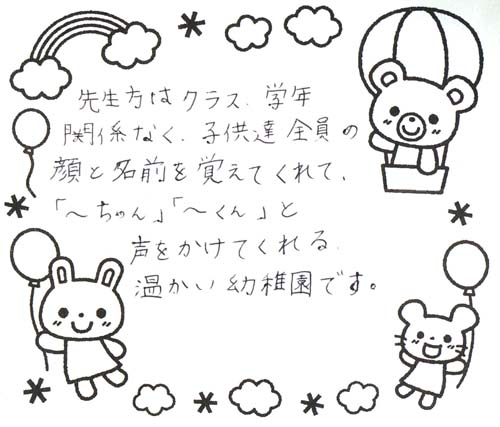 先生方はクラス、学年
関係なく、子供達全員の
顔と名前を覚えてくれて、
「〜ちゃん」「〜くん」と
声をかけてくれる、
温かい幼稚園です。